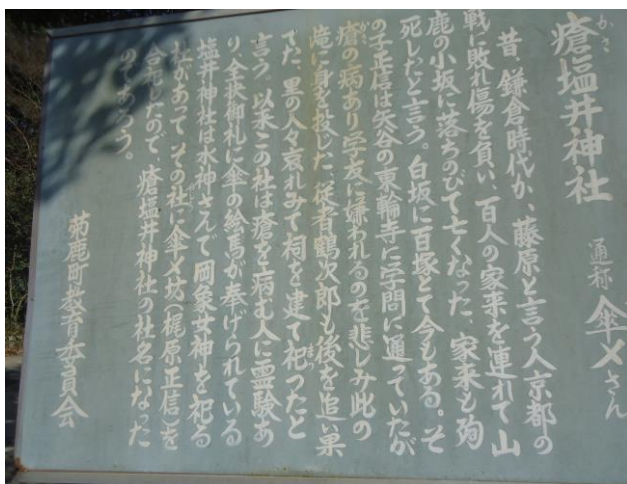 瘡塩井神社
かさ
通称 傘〆さん
昔、鎌倉時代か、藤原と言う人京都の
戦に敗れ傷を負い、百人の家来を連れて山
鹿の小坂に落ちのびて亡くなった、家来も殉
死したと言う。白坂に百塚とて今もある。そ
の子正信は矢谷の東輪寺に学問に通っていたが
瘡の病あり学友に嫌われるのを悲しみ此の
かさ
滝に身を投じた、従者鶴次郎も後を追い果
てた、里の人々哀れみて祠を建て祀つたと
まつ
言う。以来この社は瘡を病む人に霊験あ
り全快御札に傘の絵馬が奉げられている
塩井神社は水神さんで罔象女神を祀る
社があって、その社に傘〆坊(梶原正信)を
合祀したので、瘡塩井神社の社名になった
のであろう。
菊鹿町教育委員会